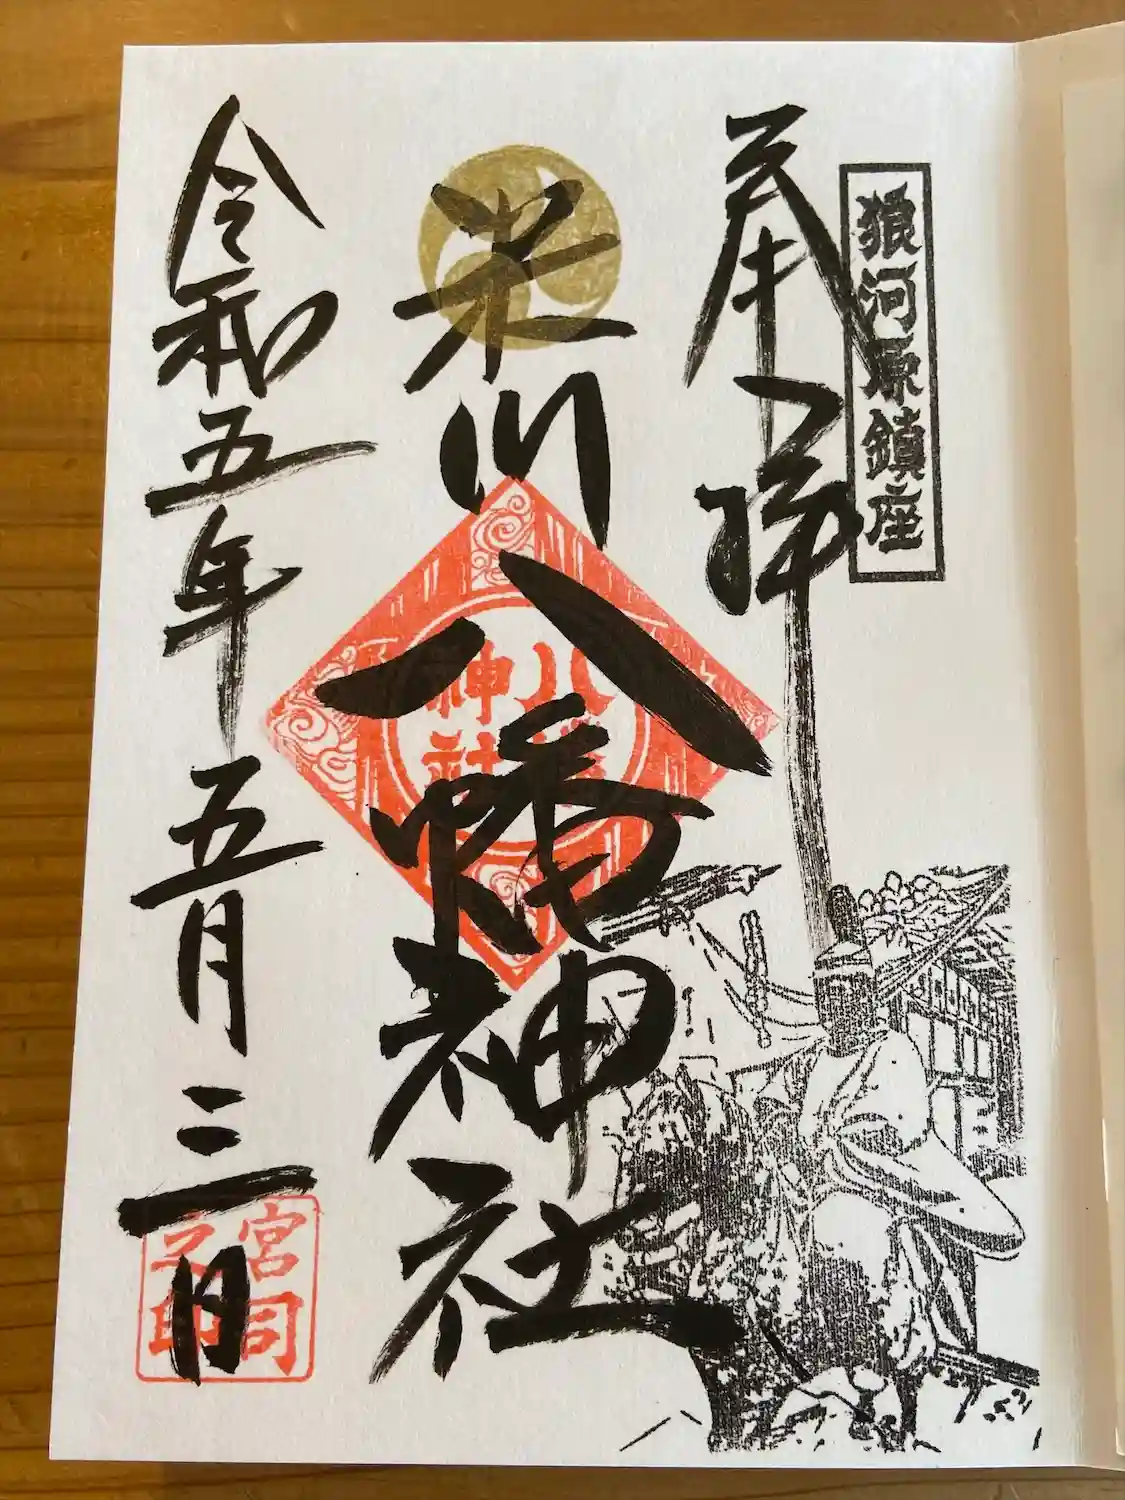 狼河原鎮座
奉拝
米川八幡神社
八幡
神社
令和五年五月三日
宮司
之印